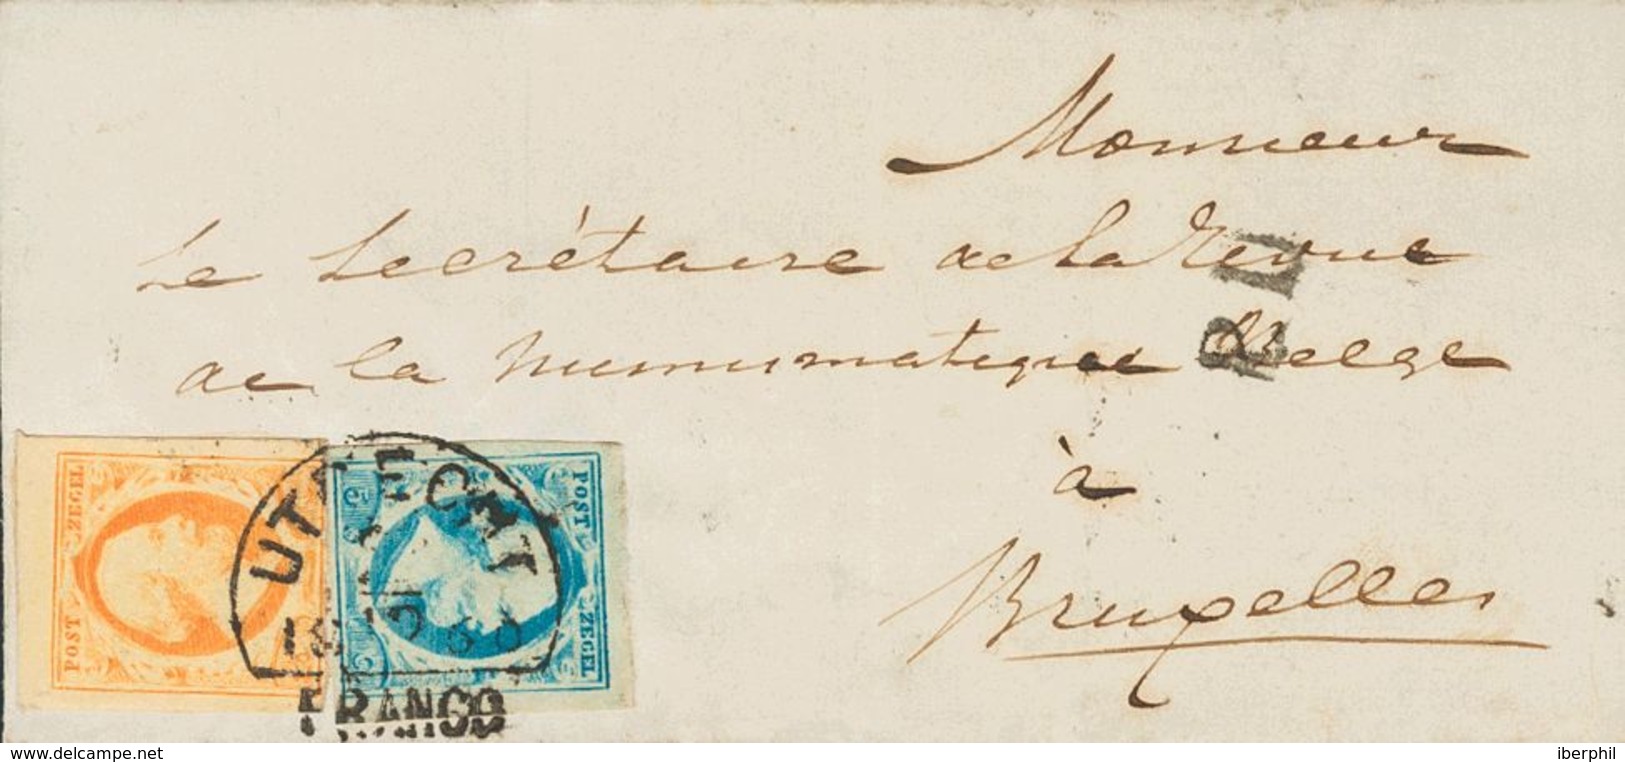 Monsieur
Le Secrétaire de la Revue
de la Numismatique Belge
à
Bruxelles
UTRECHT
FRANCO
POST ZEGEL
POST ZEGEL
5
www.delcampe.net
iberphil